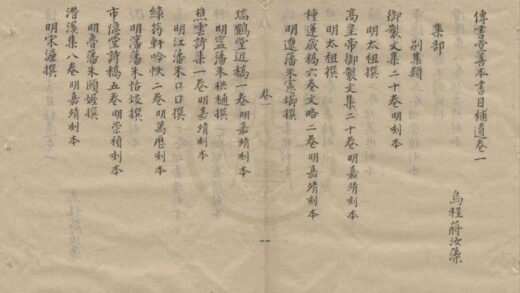 傳書堂善本書目補遺卷一
烏程蔣汝藻
集部
別集類
御製文集二十卷明刻本
明太祖撰
高皇帝御製文集二十卷明嘉靖刻本
明太祖撰
種蓮歲稿六卷文略二卷明嘉靖刻本
明遼藩朱憲㸅撰
卷一
瑞鶴堂近稿一卷明嘉靖刻本
明寧藩朱拱樋撰
樵雲詩集一卷明嘉靖刻本
明江藩朱口口撰
綠筠軒吟帙二卷明萬曆刻本
明瀋藩朱恬烄撰
市隱堂詩稿五卷明崇禎刻本
明魯藩朱頤媉撰
潛溪集八卷明嘉靖刻本
明宋濂撰